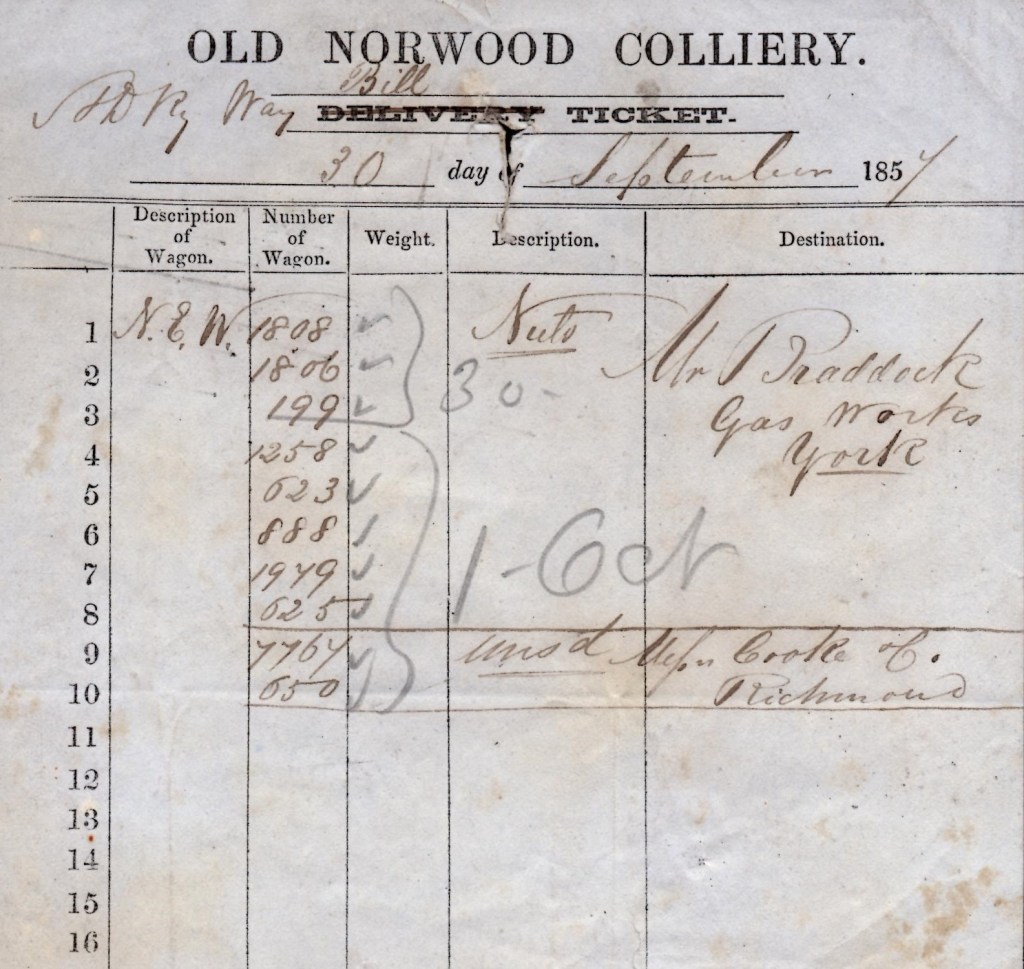 OLD NORWOOD COLLIERY.
Bill
Ry Way DELIVERY TICKET.
30 day of September 1857
Description of Wagon. Number of Wagon. Weight. Description. Destination.
1 N.E.W. 1808 Nuts
2 1806 30 - Mr Braddock
3 199 Gas Works
4 1258 York
5 623
6 888 1 - Oct
7 1979
8 625
9 7767 unsd Messrs Cooke & Co.
10 650 Richmond
11
12
13
14
15
16